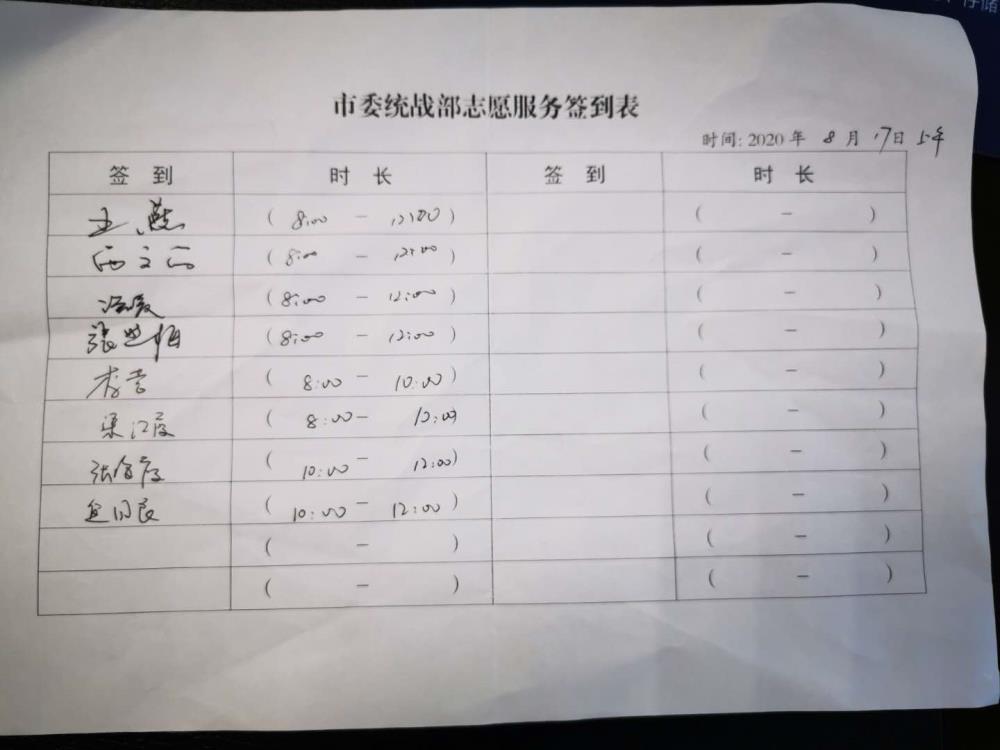 存储
市委统战部志愿服务签到表
时间: 2020 年 8 月 17日 上午
签 到 时 长 签 到 时 长
王燕 ( 8:00 - 12:00 ) ( - )
( 8:00 - 12:00 ) ( - )
( 8:00 - 12:00 ) ( - )
张世恒 ( 8:00 - 12:00 ) ( - )
李雪 ( 8:00 - 10:00 ) ( - )
梁江霞 ( 8:00 - ( - )
( 10:00 - 12:00 ) ( - )
( 10:00 - 12:00 ) ( - )
( - ) ( - )
( - ) ( - )